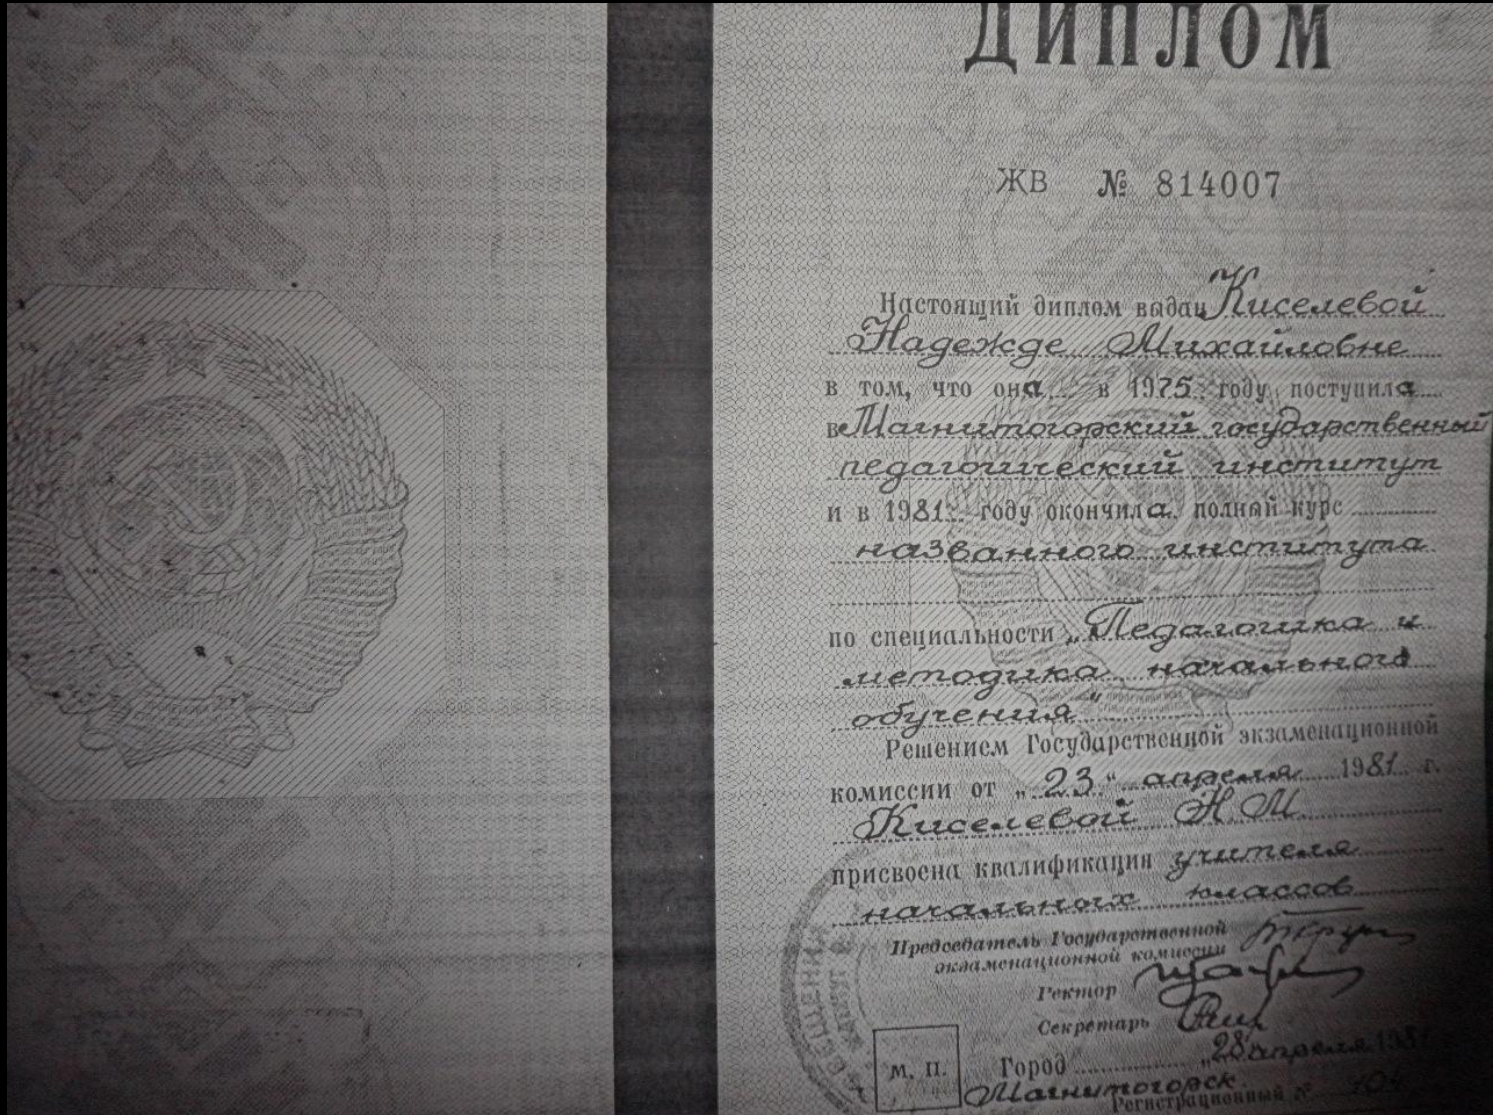 ДИПЛОМ
ЖВ № 814007
Настоящий диплом выдан Киселевой
Надежде Михайловне
в том, что она в 1975 году поступила
в Магнитогорский государственный
педагогический институт
и в 1981 году окончила полный курс
названного института
по специальности „Педагогика и
методика начального
обучения"
Решением Государственной экзаменационной
комиссии от „23" апреля 1981 г.
Киселевой Н.М.
присвоена квалификация учителя
начальных классов
Председатель Государственной
экзаменационной комиссии
Ректор
Секретарь
„28 апреля 1981
М. П. Город
Магнитогорск
Регистрационный №